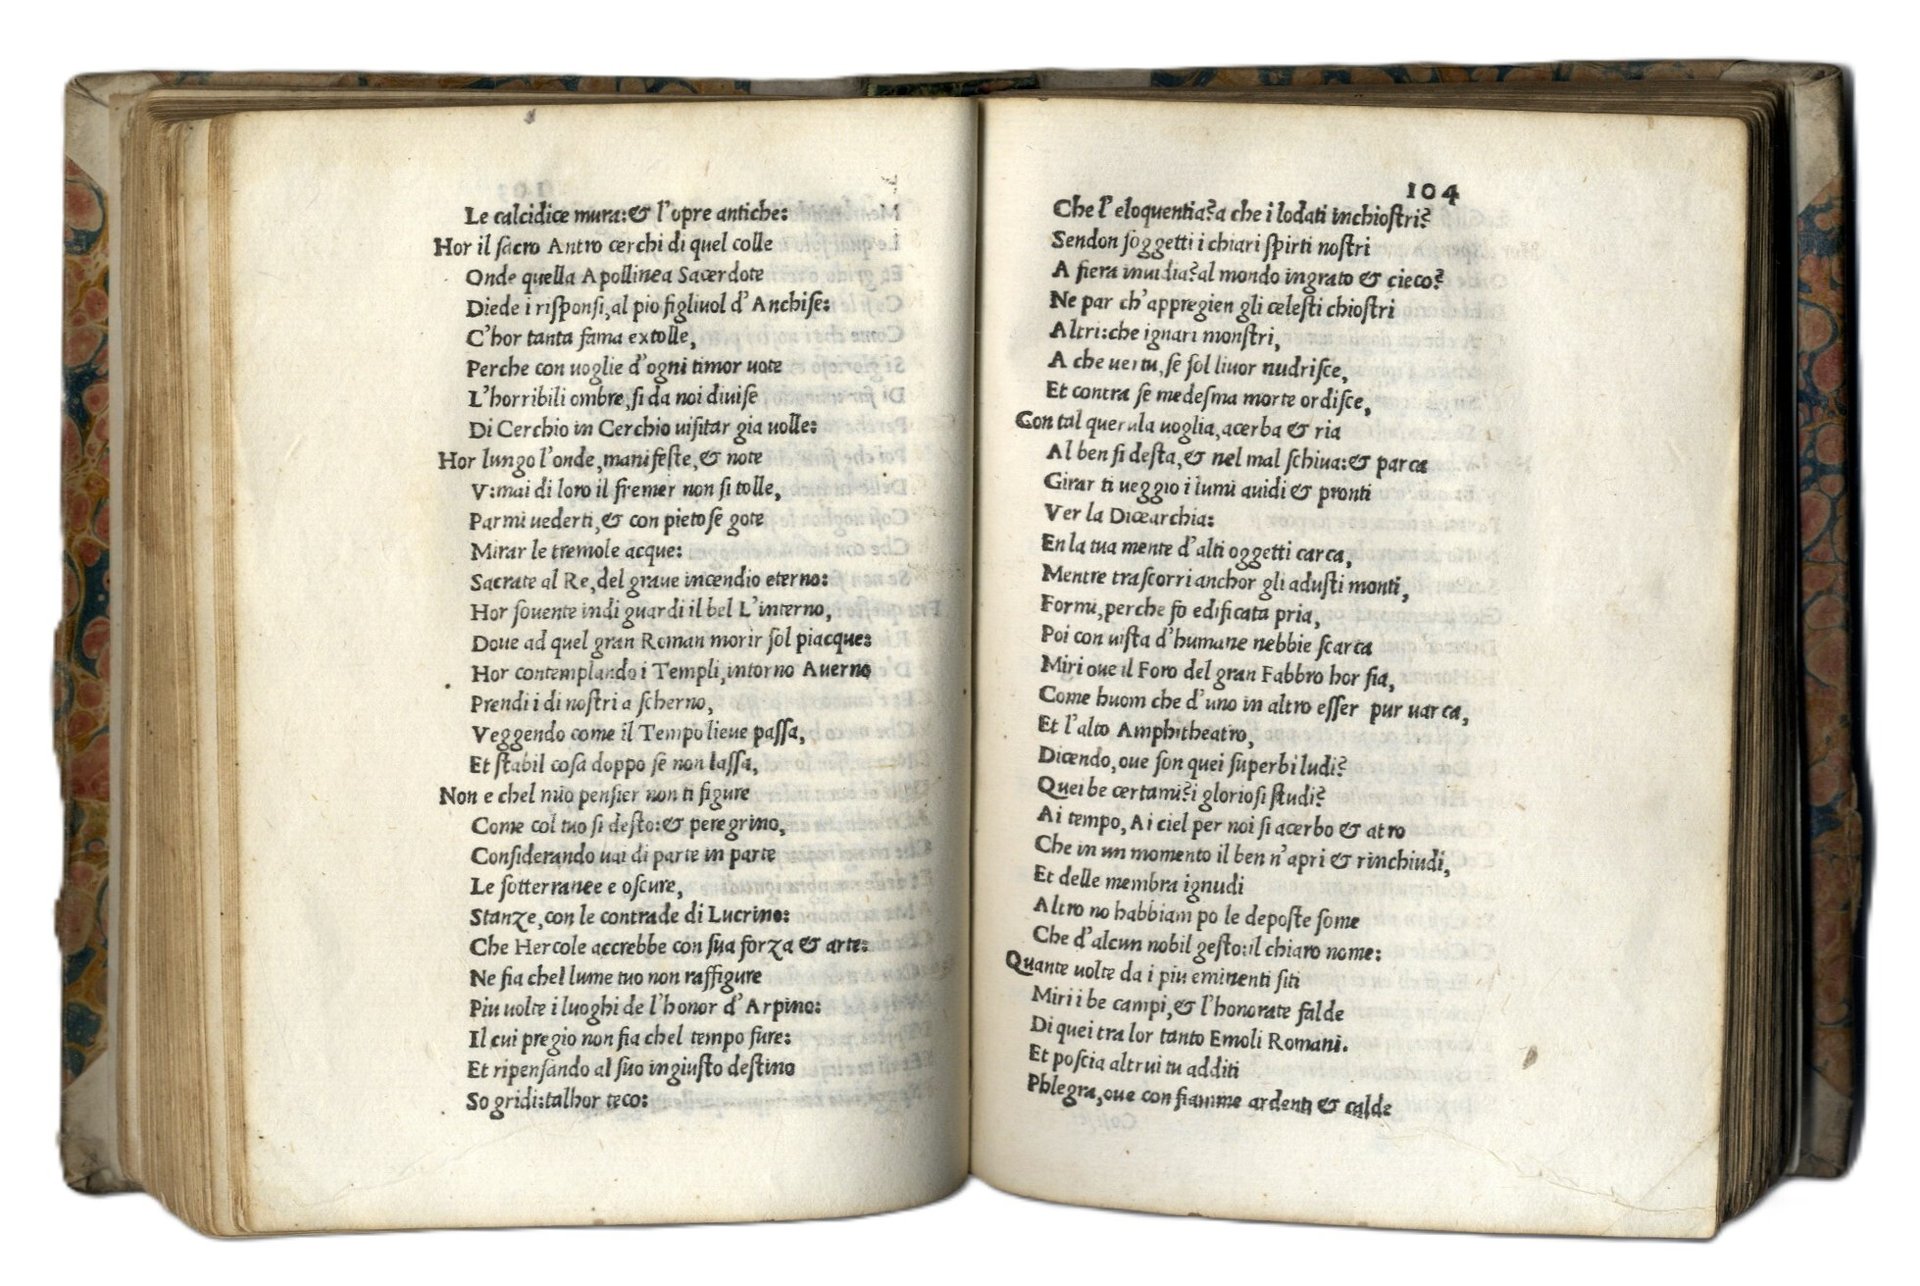 Le calcidice mura:& l'opre antiche:
Hor il ſacro Antro cerchi di quel colle
Onde quella Apollinea Sacerdote
Diede i riſponſi,al pio figliuol d'Anchiſe:
C'hor tanta fama extolle,
Perche con uoglie d'ogni timor uote
L'horribili ombre,ſi da noi diuiſe
Di Cerchio in Cerchio uiſitar gia uolle:
Hor lungo l'onde,manifeſte,& note
V:mai di loro il fremer non ſi tolle,
Parmi uederti,& con pietoſe gote
Mirar le tremole acque:
Sacrate al Re,del graue incendio eterno:
Hor ſouente indi guardi il bel L'interno,
Doue ad quel gran Roman morir ſol piacque:
Hor contemplando i Templi,intorno Auerno
Prendi i di noſtri a ſcherno,
Veggendo come il Tempo lieue paſſa,
Et ſtabil coſa doppo ſe non laſſa,
Non e chel mio penſier non ti figure
Come col tuo ſi deſto:& peregrino,
Conſiderando uai di parte in parte
Le ſotterranee e oſcure,
Stanze,con le contrade di Lucrino:
Che Hercole accrebbe con ſua forza & arte:
Ne fia chel lume tuo non raffigure
Piu uolte i luoghi de l'honor d'Arpino:
Il cui pregio non fia chel tempo fure:
Et ripenſando al ſuo ingiuſto deſtino
So gridi:talhor teco:
104
Che l'eloquentia?a che i lodati inchioſtri?
Sendon ſoggetti i chiari ſpirti noſtri
A fiera inuidia?al mondo ingrato & cieco?
Ne par ch'appregien gli celeſti chioſtri
Altri:che ignari monſtri,
A che uertu,ſe ſol liuor nudriſce,
Et contra ſe medeſma morte ordiſce,
Con tal querula uoglia,acerba & ria
Al ben ſi deſta,& nel mal ſchiua:& parca
Girar ti ueggio i lumi auidi & pronti
Ver la Dicearchia:
En la tua mente d'alti oggetti carca,
Mentre traſcorri anchor gli aduſti monti,
Formi,perche fo edificata pria,
Poi con uiſta d'humane nebbie ſcarca
Miri oue il Foro del gran Fabbro hor ſia,
Come huom che d'uno in altro eſſer pur uarca,
Et l'alto Amphitheatro,
Dicendo,oue ſon quei ſuperbi ludi?
Quei be certami?i glorioſi ſtudi?
Ai tempo, Ai ciel per noi ſi acerbo & atro
Che in un momento il ben n'apri & rinchiudi,
Et delle membra ignudi
Altro no habbiam po le depoſte ſome
Che d'alcun nobil geſto:il chiaro nome:
Quante uolte da i piu eminenti ſiti
Miri i be campi,& l'honorate falde
Di quei tra lor tanto Emoli Romani.
Et poſcia altrui tu additi
Phlegra,oue con fiamme ardenti & calde